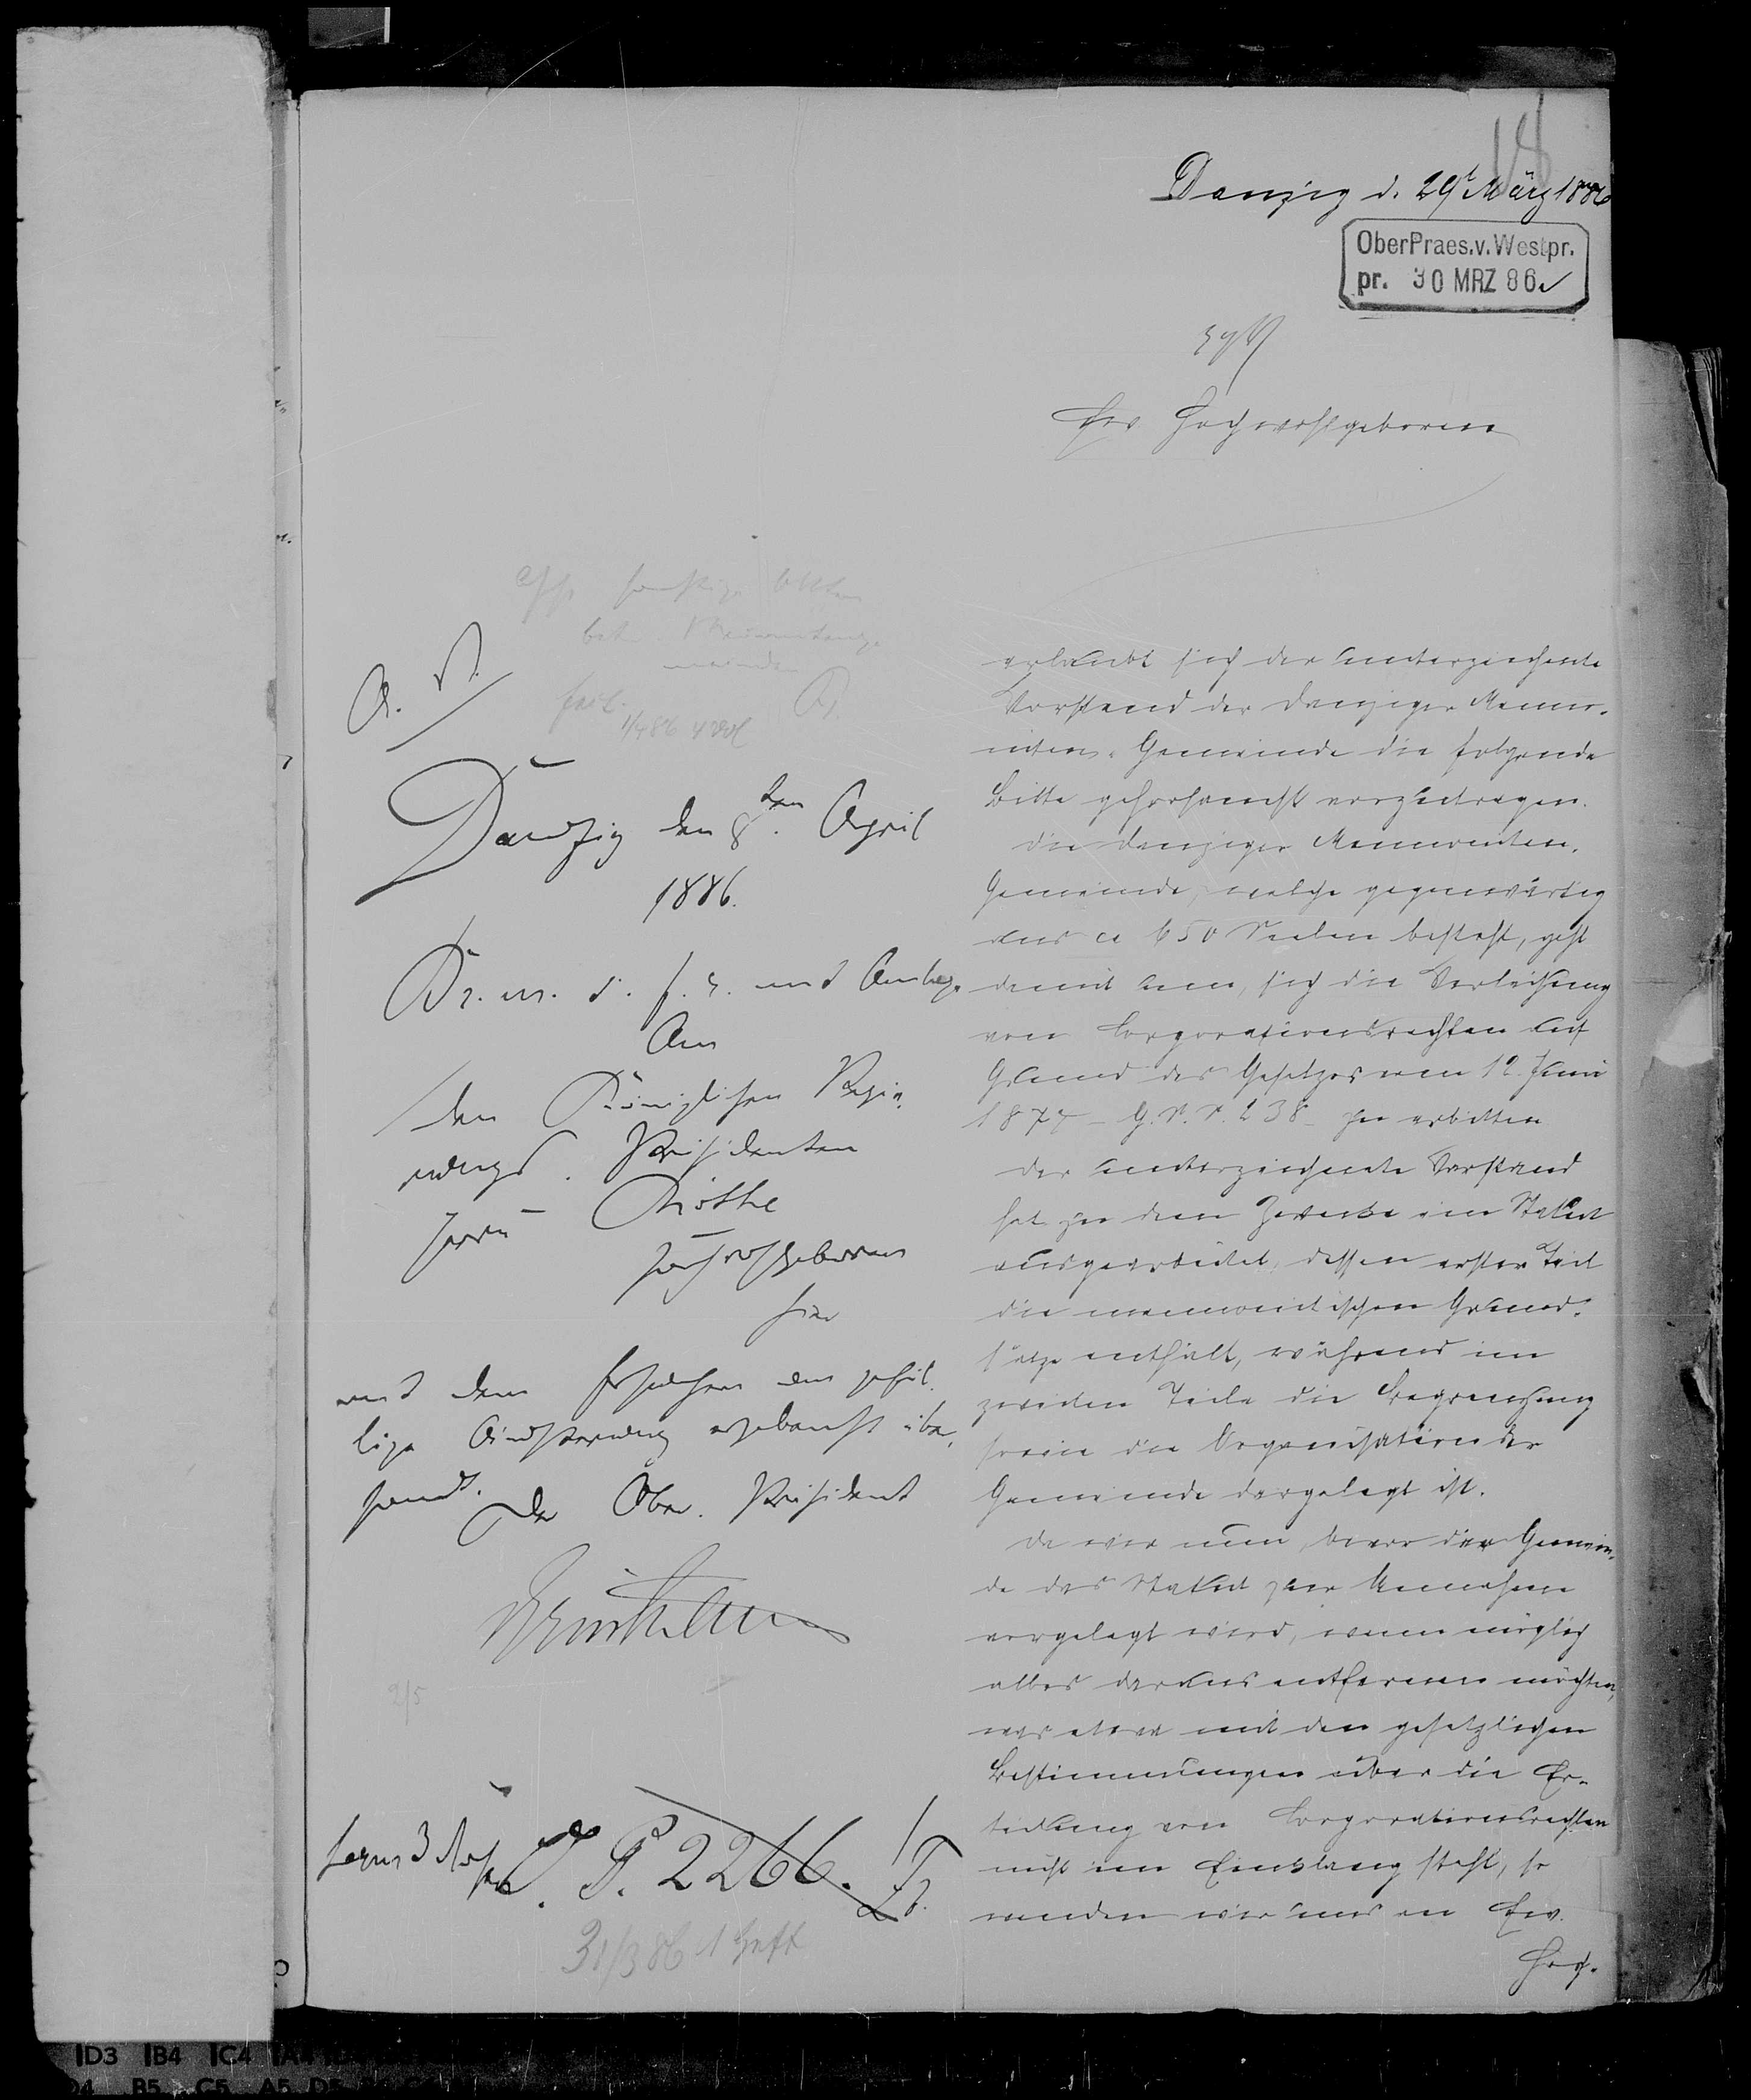 18
Danzig d. 29t März 1886
OberPraes.v.Westpr.
pr. 30 MRZ 86.
Ew Hochwohlgeboren
erlaubt sich der unterzeichnete
Vorstand der Danziger Menno-
niten-Gemeinde die folgende
Bitte gehorsamst vorzutragen.
Die Danziger Mennoniten-
Gemeinde, welche gegenwärtig
aus ca 650 Seelen besteht, geht
damit um, sich die Verleihung
von Corporationsrechten auf
Grund des Gesetzes vom 12. Juni
1874 - G. S. S. 238 - zu erbitten
Der unterzeichnete Vorstand
hat zu dem Zwecke ein Statut
ausgearbeitet, dessen erster Teil
die mennonitischen Grund-
sätze enthält, während im
zweiten Teile die Begrenzung
sowie die Organisation der
Gemeinde dargelegt ist.
Da wir nun, bevor der Gemein-
de das Statut zur Annahme
vorgelegt wird, wenn möglich
alles daraus entfernen möchten,
was etwa mit den gesetzlichen
Bestimmungen über die Er-
teilung von Corporationsrechten
nicht im Einklang steht, so
wenden wir uns an Ew.
Hoch-
betr. Mennonitenge-
meinden
Danzig den 8ten April
1886.
Br. m. d. f. R. und Anlage
An
den Königlichen Regie-
rungs-Präsidenten
Herrn Rothe
Hochwohlgeboren
hier
mit dem Ersuchen um gefäl-
lige Äußerung ergebenst über-
sandt.
Der Ober-Präsident
2/5
O. P. 2266.
31/3 86 1 Heft
D3 B4 C4 A4
B5 C5 A5